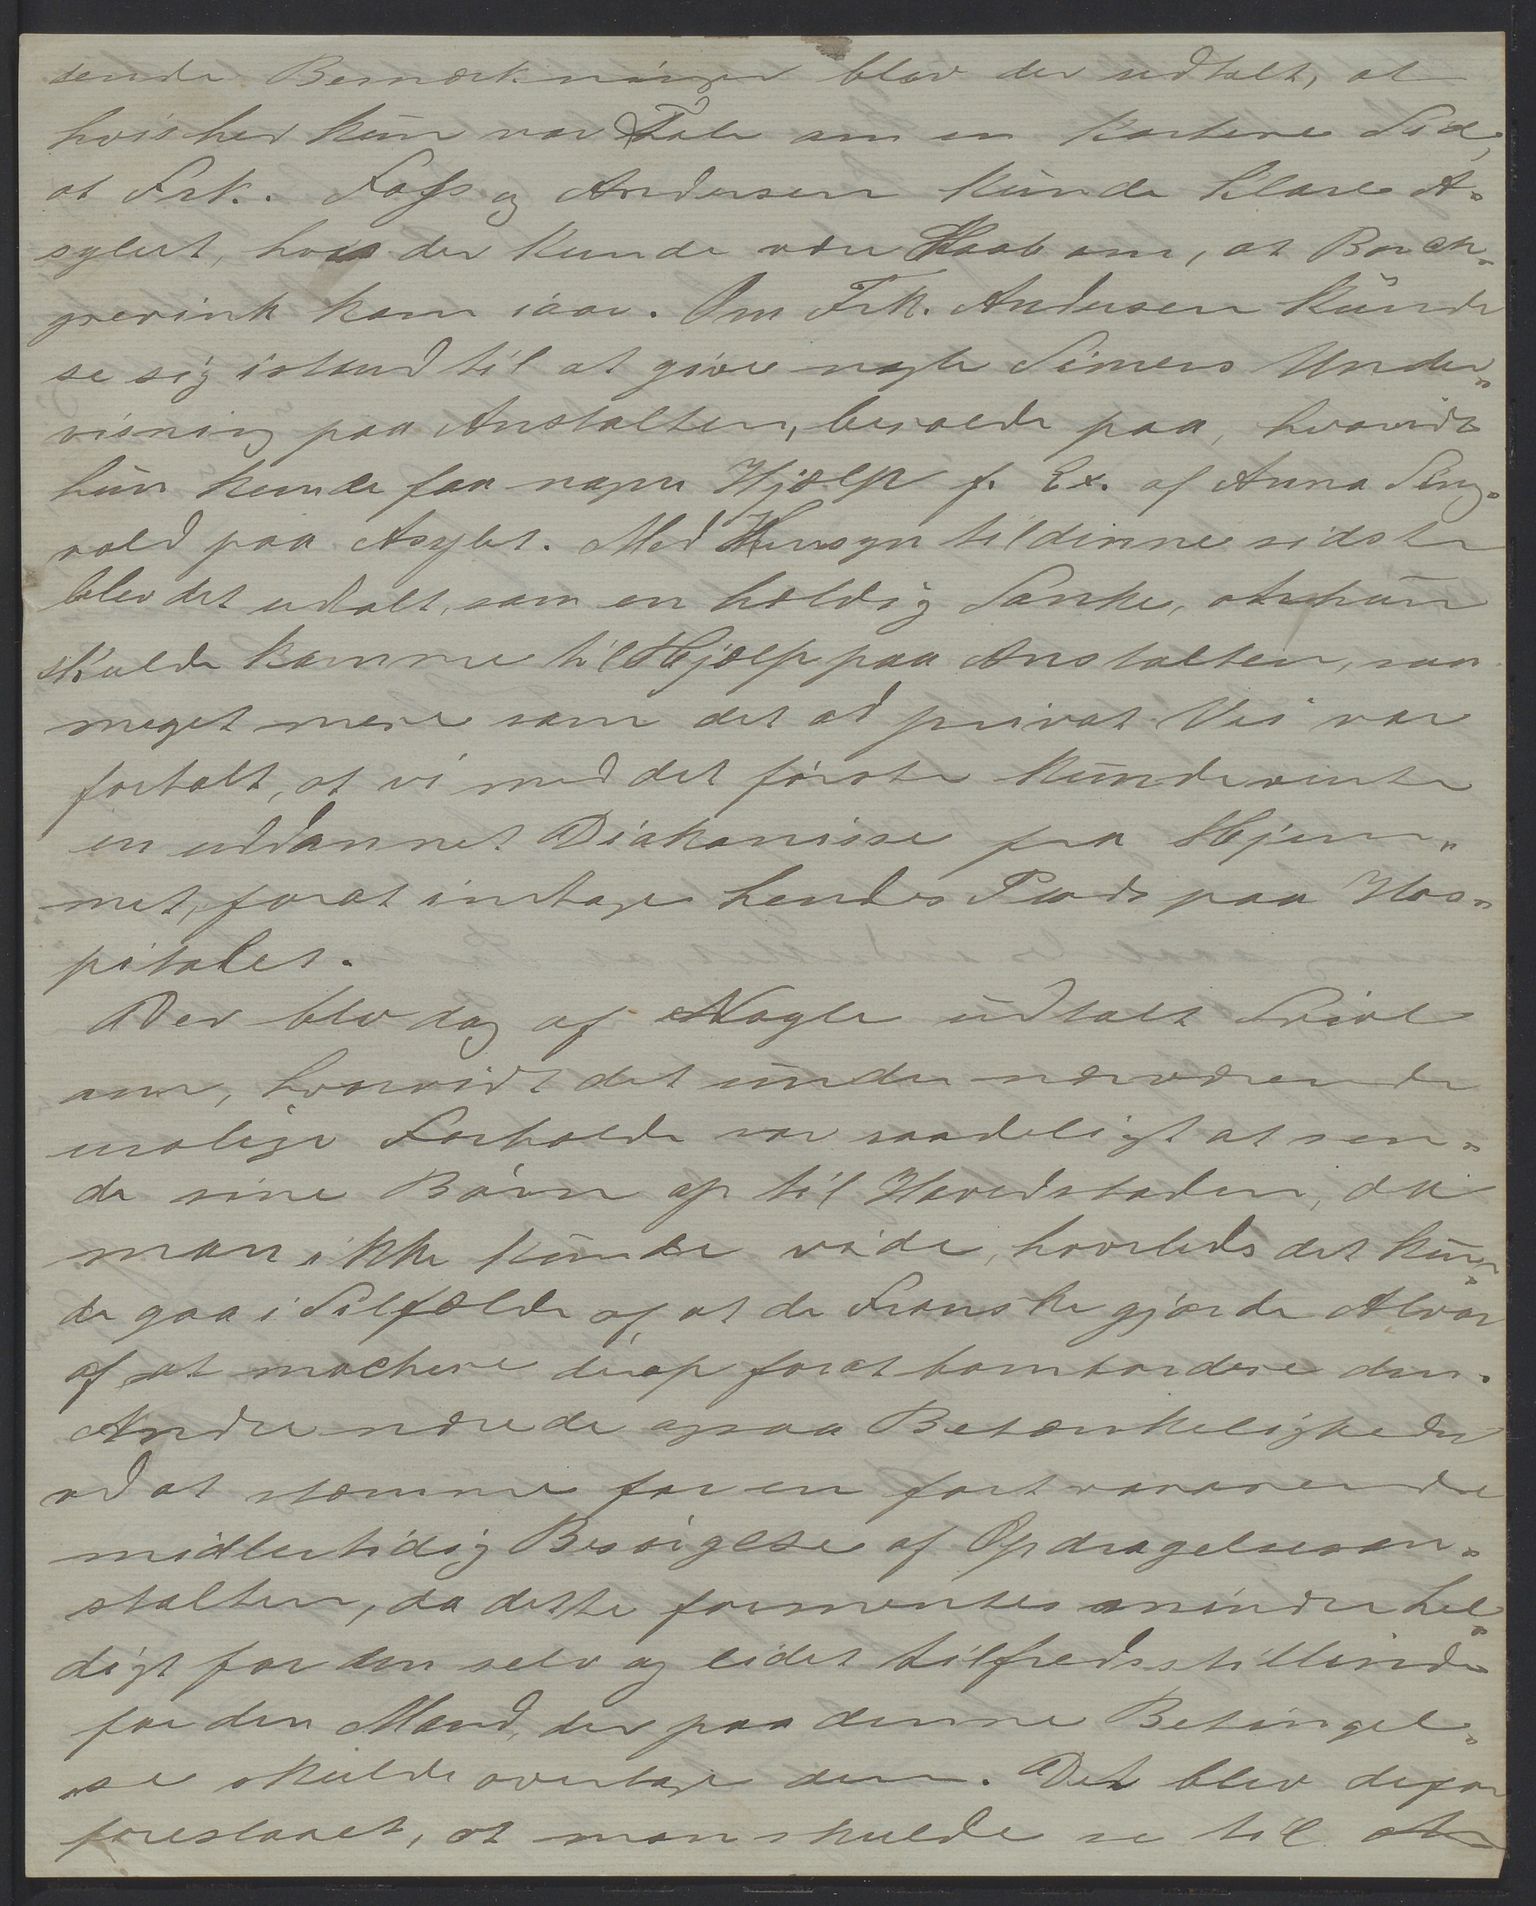 dende Bemærkninger blev der udtalt, at
hvis her kun var Tale om en kortere Tid,
at Frk. Foss og Andersen kunde klare A-
sylet, hvis der kunde være Haab om, at Borch-
grevink kom iaar. Om Frk. Andersen kunde
se sig istand til at give nogle Timers Under-
visning paa Anstalten, beroede paa, hvorvidt
hun kunde faa nogen Hjælp f. Ex. af Anna Ling-
vold paa Asylet. Med Hensyn til dinne sidste
blev det udtalt, som en heldig Tanke, at hun
skulde komme til Hjælp paa Anstalten, saa
meget mere som det ad privat Vei var
fortalt, at vi med det første kunde vente
en uddannet Diakonisse fra Hjem-
met, forat indtage hendes Plads paa Hos-
pitalet.
Der blev dog af Nogle udtalt Tvivl
om, hvorvidt det under nærværende
urolige Forholde var raadeligt at sen-
de sine Børn op til Hovedstaden, da
man ikke kunde vide, hvorledes det kun-
de gaa i Tilfælde af at de Franske gjorde Alvor
af at marchere derop forat bombardere den.
Andre nærede ogsaa Betænkeligheder
ved at stemme for en fortvarende
midlertidig Besørgelse af Opdragelsesan-
stalten, da dette formentes mindre hel-
digt for den selv og lidet tilfredsstillende
for den Mand, der paa denne Betingel-
se skulde overtage den. Det blev derfor
foreslaaet, at man skulde se til at